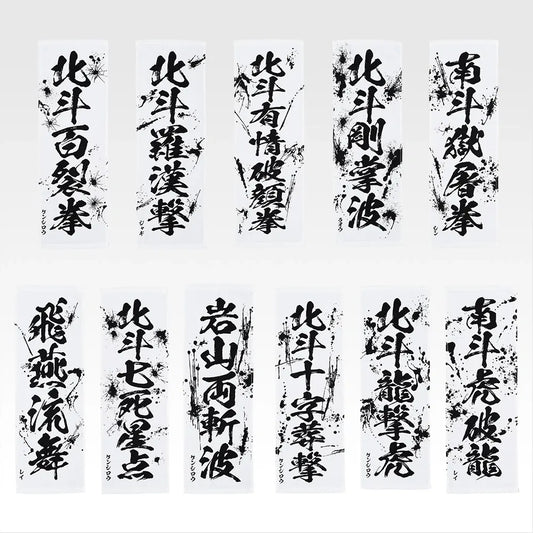 北斗百裂拳
ケンシロウ
北斗羅漢撃
ジャギ
北斗有情破顔拳
トキ
北斗剛掌波
ラオウ
南斗獄屠拳
シン
飛燕流舞
レイ
北斗七死星点
ケンシロウ
岩山両斬波
ケンシロウ
北斗十字葬撃
ケンシロウ
北斗龍撃虎
ケンシロウ
南斗虎破龍
レイ